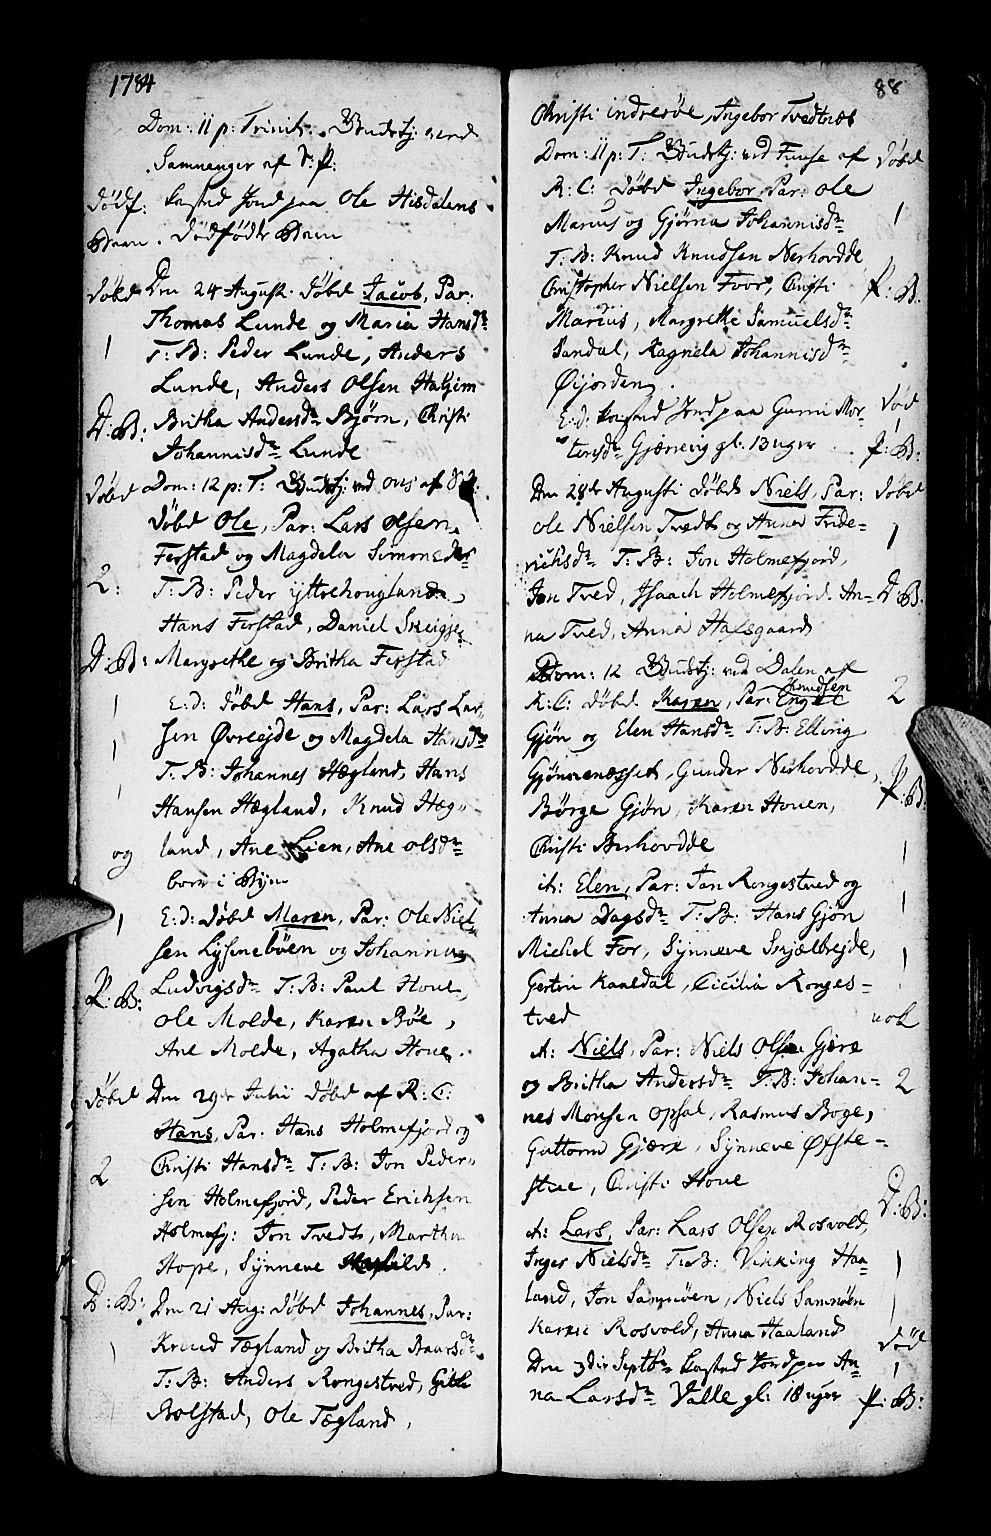 1784
Dom: 11 p: Trinit: Gudstj: ved
Samnanger af S: P:
Dödf: kasted Jord paa Ole Hisdalens
Baan. Dødfödte Barn
Döbd Den 24 August. Döbd Jacob, Par:
Thomas Lunde og Maria Hansdr
1 T: B: Peder Lunde, Anders
Lunde, Anders Olsen Haljem
D: B: Britha Andersdr Bjørn, Christi
Johannisdr Lunde
Döbd Dom: 12 p: T: Gudstj: ved Ous af
döbd Ole, Par: Lars Olsen
Ferstad og Magdela Simonsdr
2: T: B: Peder yttrehougland,
Hans Ferstad, Daniel
D: B: Margrethe og Britha Ferstad
1 E: d: Döbd Hans, Par: Lars Lar-
1 sen Øvreejde og Magdela Hansdr
T: B: Johannes Hægland, Hans
Hansen Hægland, Knud Hæg-
og land, Ane Lien, Ane Olsdr
born i Byen
1 E: d: Döbd Maren, Par: Ole Niel-
sen Lysnebøen og Johanna
P: B: Ludvigsdr T: B: Paul Houe,
Ole Molde, Karen Bøe,
Ane Molde, Agatha Houe.
Döbd Den 29de Julii döbd af R: C:
Hans, Par: Hans Holmefjord og
2 Christi Hansdr T: B: Jon Peder-
sen Holmefjord, Peder Erichsen
Holmefj: Jon Tvedt, Martha
Hope, Synneve
D: B: Den 21 Aug: döbd Johannes, Par:
1 Knud Tægland og Britha
T: B: Anders Rongestved, Gitle
Bolstad, Ole Tægland,
88
Christi indresøe, Ingebor Tvedtnæs
Dom: 11 p: T: Gudstj: ved Fuuse af Döbd
R: C: döbd Ingebor, Par: Ole
Marius og Gjørna Johannisdr 1
T: B: Knud Knudsen Nerhovdde
Christopher Nielsen Foor, Christi P: B:
Marius, Margrethe Samuelsdr
Sandal, Ragnela Johannisdr
Øijorden.
E: d: kasted Jord paa Gurri Mor- Död
tensdr Gjærevig gl: 13 uger P: B:
Den 28de Augusti döbd Niels, Par: Döbd
Ole Nielsen Tvedt og Anna Fride- 1
richsdr T: B: Jon Holmefjord,
Jon Tved, Isaach Holmefjord. An- D: B:
na Tved, Anna Hafsgaard
Dom: 12 Gudstj: ved Dalen af
R: C: döbd Karen, Par: Engel Knudsen 2
Gjøn og Elen Hansdr T: B: Elling
Gjønnenæsset, Gunder Nerhovdde, P: B:
Børge Gjøn, Karen Houen,
Christi Berhovdde 1
it: Elen, Par: Jan Rongestved og
Anna Dagsdr T: B: Hans Gjøn 1
Michel For, Synneve Skjælbrejde, 1
Gertru Kaaldal, Cicilia Ronges-
tved nok
it: Niels, Par: Niels Olsen Gjøre
og Britha Andersdr T: B: Johan- 2
nes Monsen Opsal, Rasmus Boge,
Guttorm Gjære, Synneve Øfste-
stue, Christi Houe D: B:
it: Lars, Par: Lars Olsen Rosvold,
Inger Nielsdr T: B: Vikking Haa- 1
land, Jon Samnöen, Niels Samnøen 1
Karen Rosvold, Anna Haaland Död
Den 3die Septbr kasted Jord paa An- 1
na Larsdr Valle gl: 18 uger P: B: